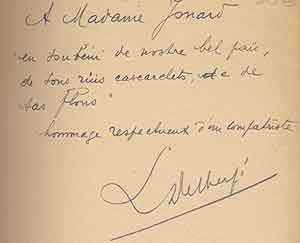 A Madame Jonard
"en soubéni de nostre bel païs,
de sons riüs cascarelets, de
sas flous"
hommage respectueux d'un compatriote